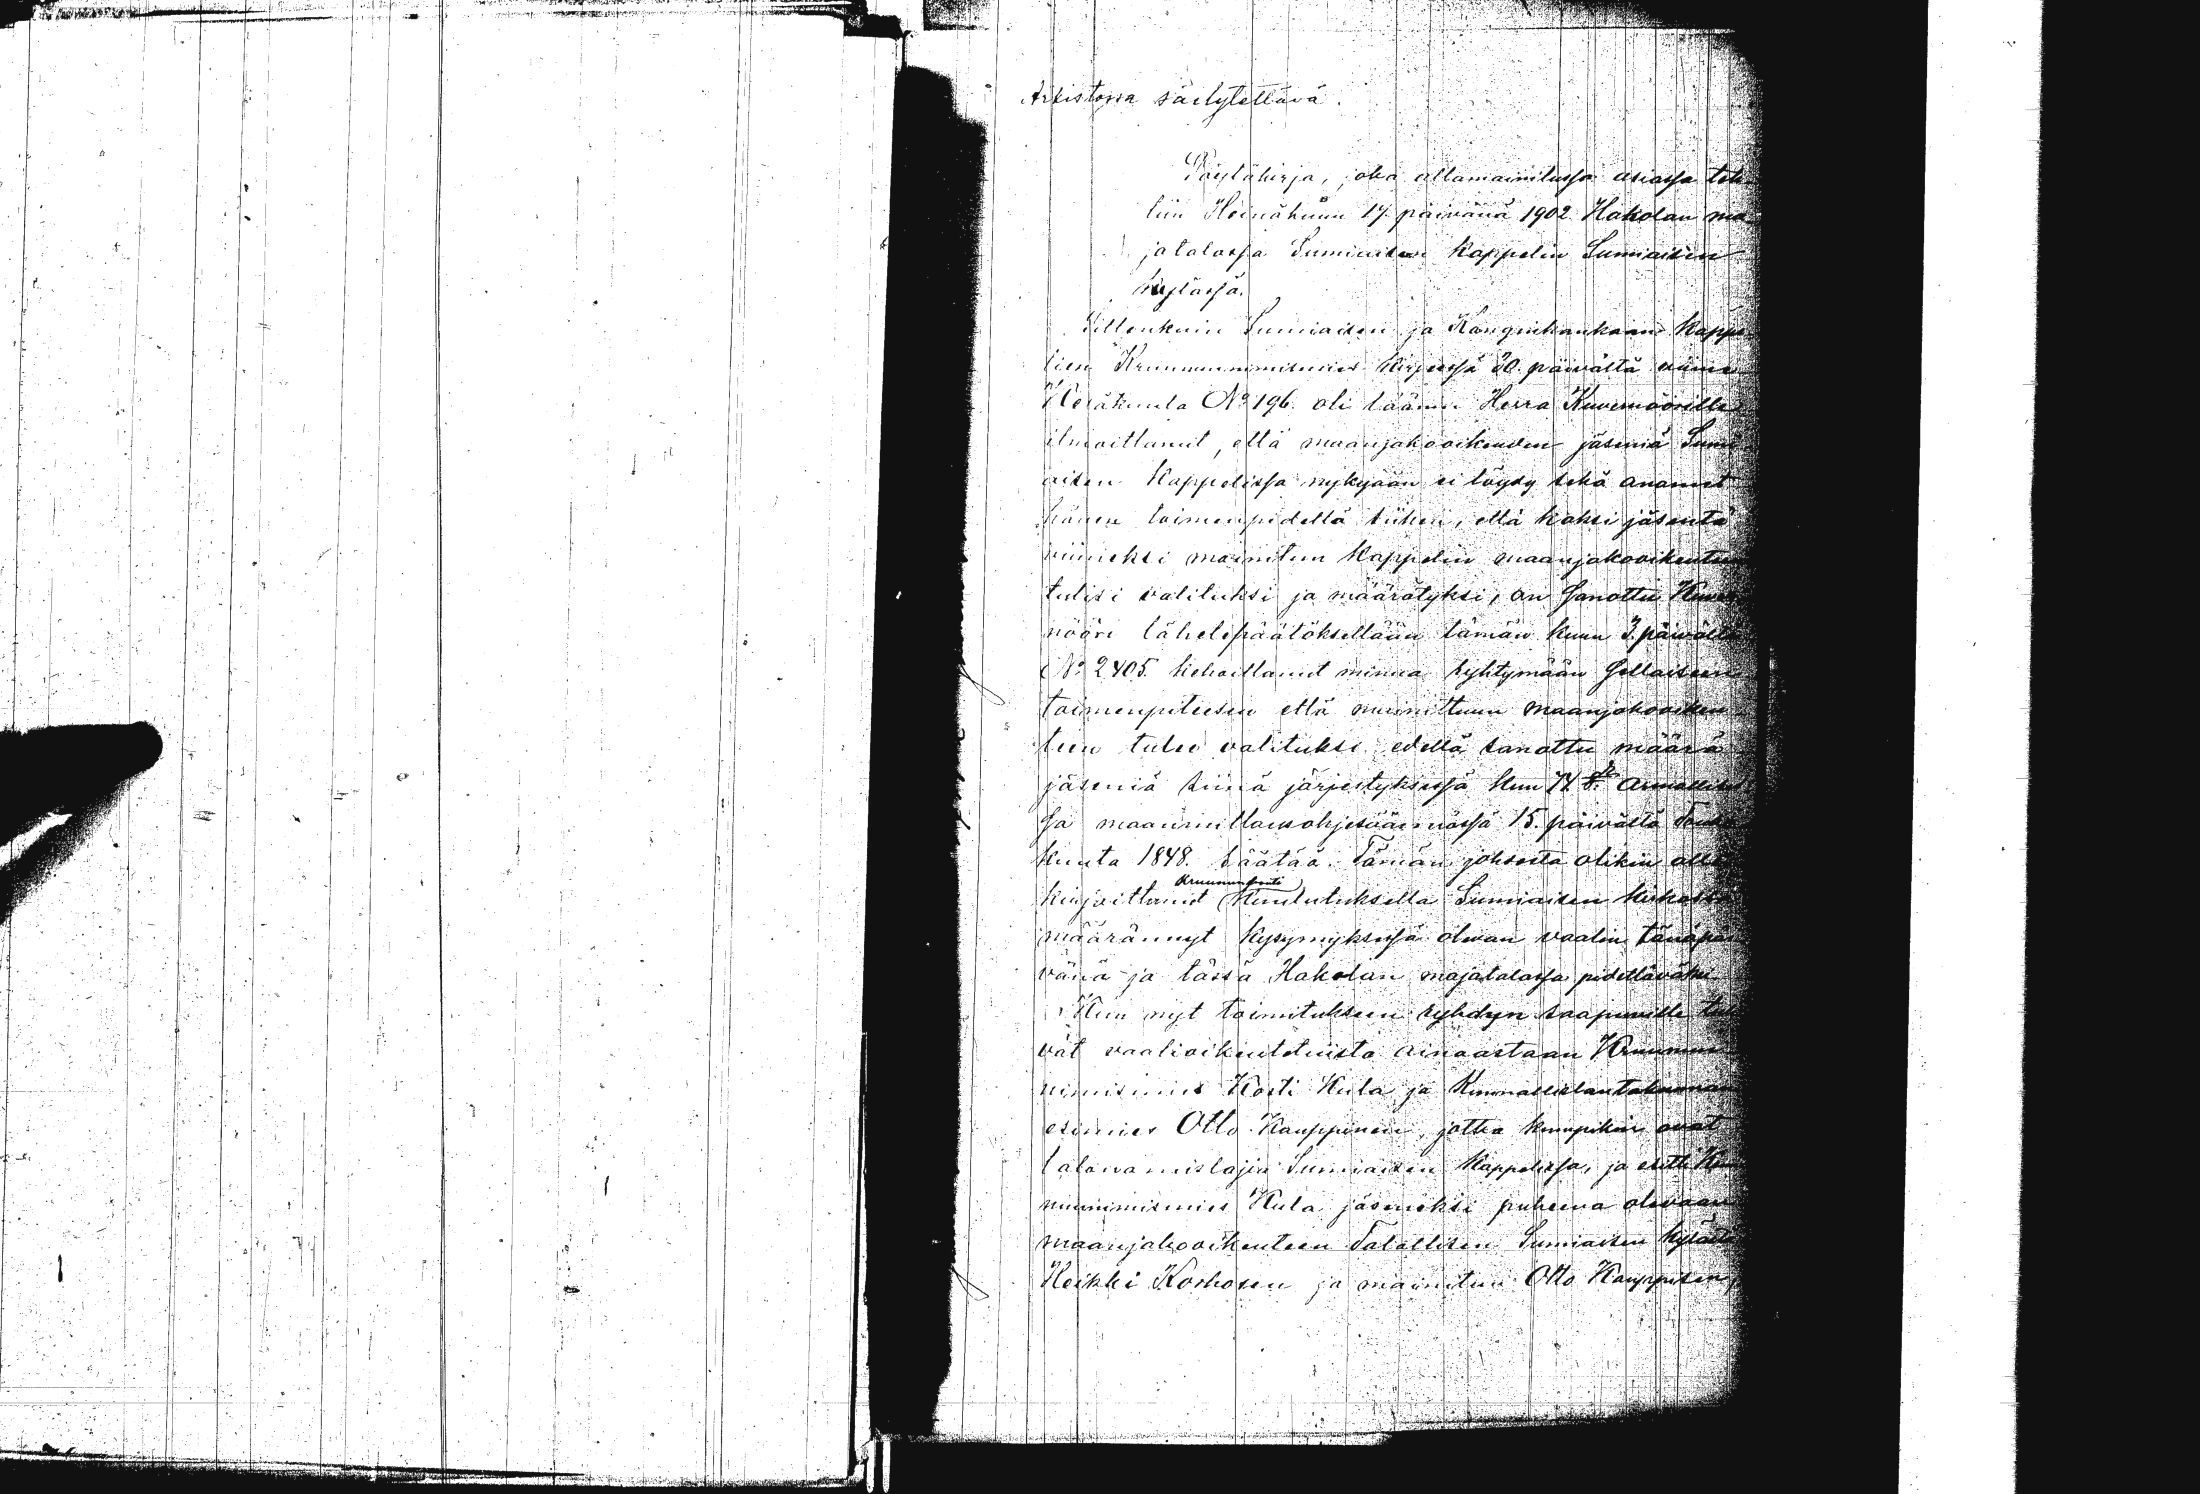 Arkistossa säilytettävä.
Pöytäkirja, joka allamainitussa asiassa teh-
tiin Heinäkuun 17. päivänä 1902 Hakolan ma-
jatalossa Sumiaisen kappelin Sumiaisen
kylässä.
Sittenkuin Sumiaisen ja Konginkankaan kappe-
lien Kruununnimismies kirjeessä 30. päivältä viime
Kesäkuuta No 196. oli läänin Herra Kuvernöörille
ilmoittanut, että maanjakooikeuden jäseniä Sumi-
aisen kappelissa nykyään ei löydy sekä anonut
hänen toimenpidettä siihen, että kaksi jäsentä
viimeksi mainitun kappelin maanjakooikeuteen
tulisi valituksi ja määrätyksi, on sanottu Kuver-
nööri lähetepäätöksellään tämän kuun 3. päivältä
No 2405. kehoittanut minua ryhtymään sellaiseen
toimenpiteesen että mainittuun maanjakooikeu-
teen tulee valituksi edellä sanottu määrä
jäseniä siinä järjestyksessä kun 74 § Armollises-
sa maanmittausohjesäännössä 15. päivältä Touko-
kuuta 1848. säätää. Tämän johdosta olikin alle-
kirjoittanut Kruununvouti kuulutuksella Sumiaisen kirkossa
määrännyt kysymyksessä olevan vaalin tänäpäi-
vänä ja tässä Hakolan majatalossa pidettäväksi
Kun nyt toimitukseen ryhdyn saapuville tuli-
vat vaalioikeutetuista ainoastaan Kruunun-
nimismies Kosti Kula ja Kunnallislautakunnan
esimies Otto Kauppinen, jotka kumpikin ovat
talonomistajia Sumiaisen kappelissa, ja esitti Kruu-
nunnimismies Kula jäseneksi puheena olevaan
maanjakooikeuteen Talollisen Sumiaisen kylästä
Heikki Korhosen ja mainitun Otto Kauppisen,